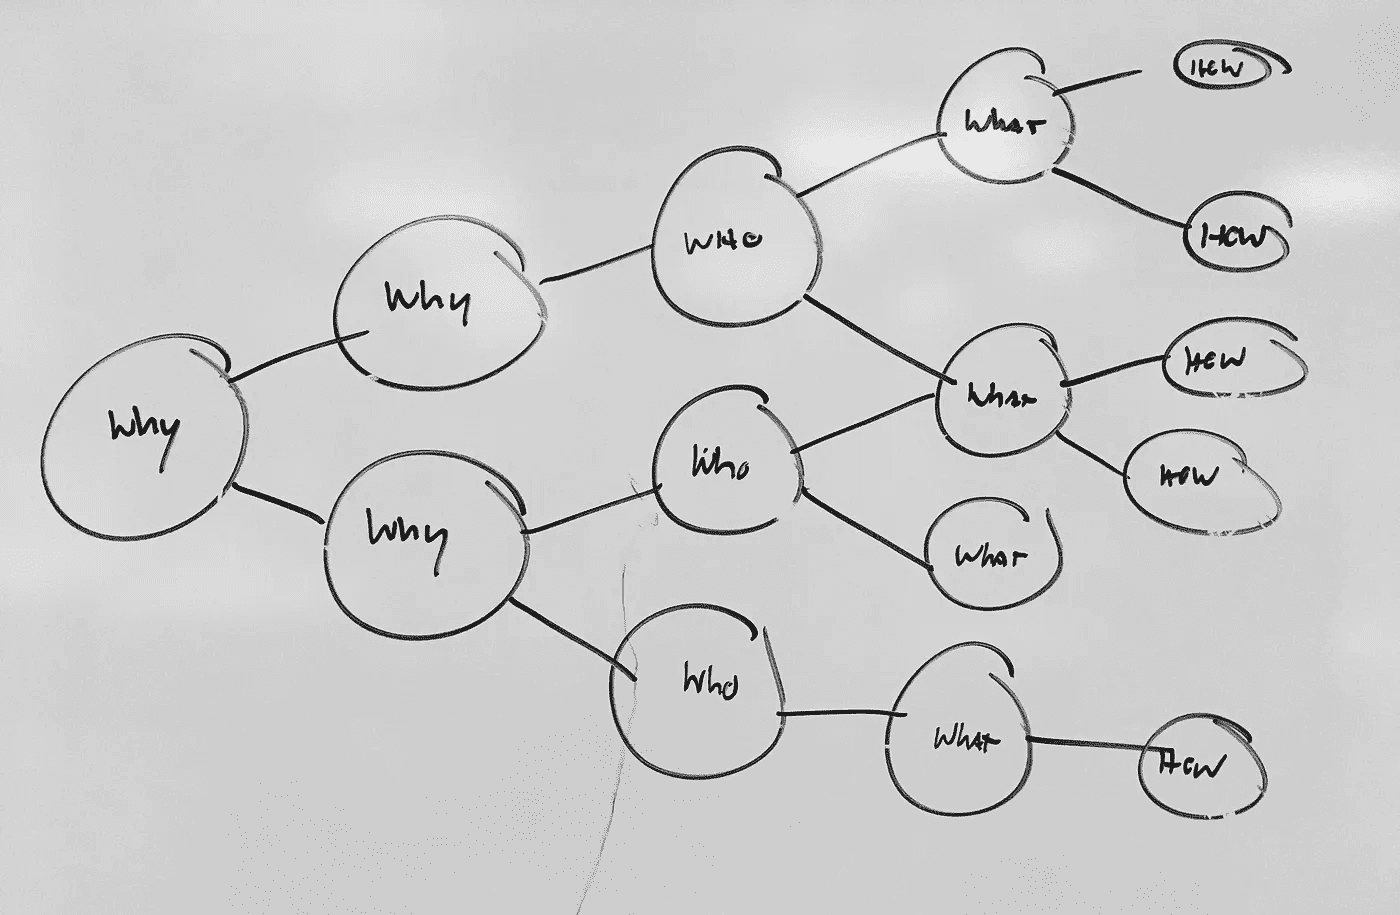 Why
Why
Why
WHO
Who
Who
WHAT
WHAT
WHAT
WHAT
HOW
HOW
HOW
HOW
HOW